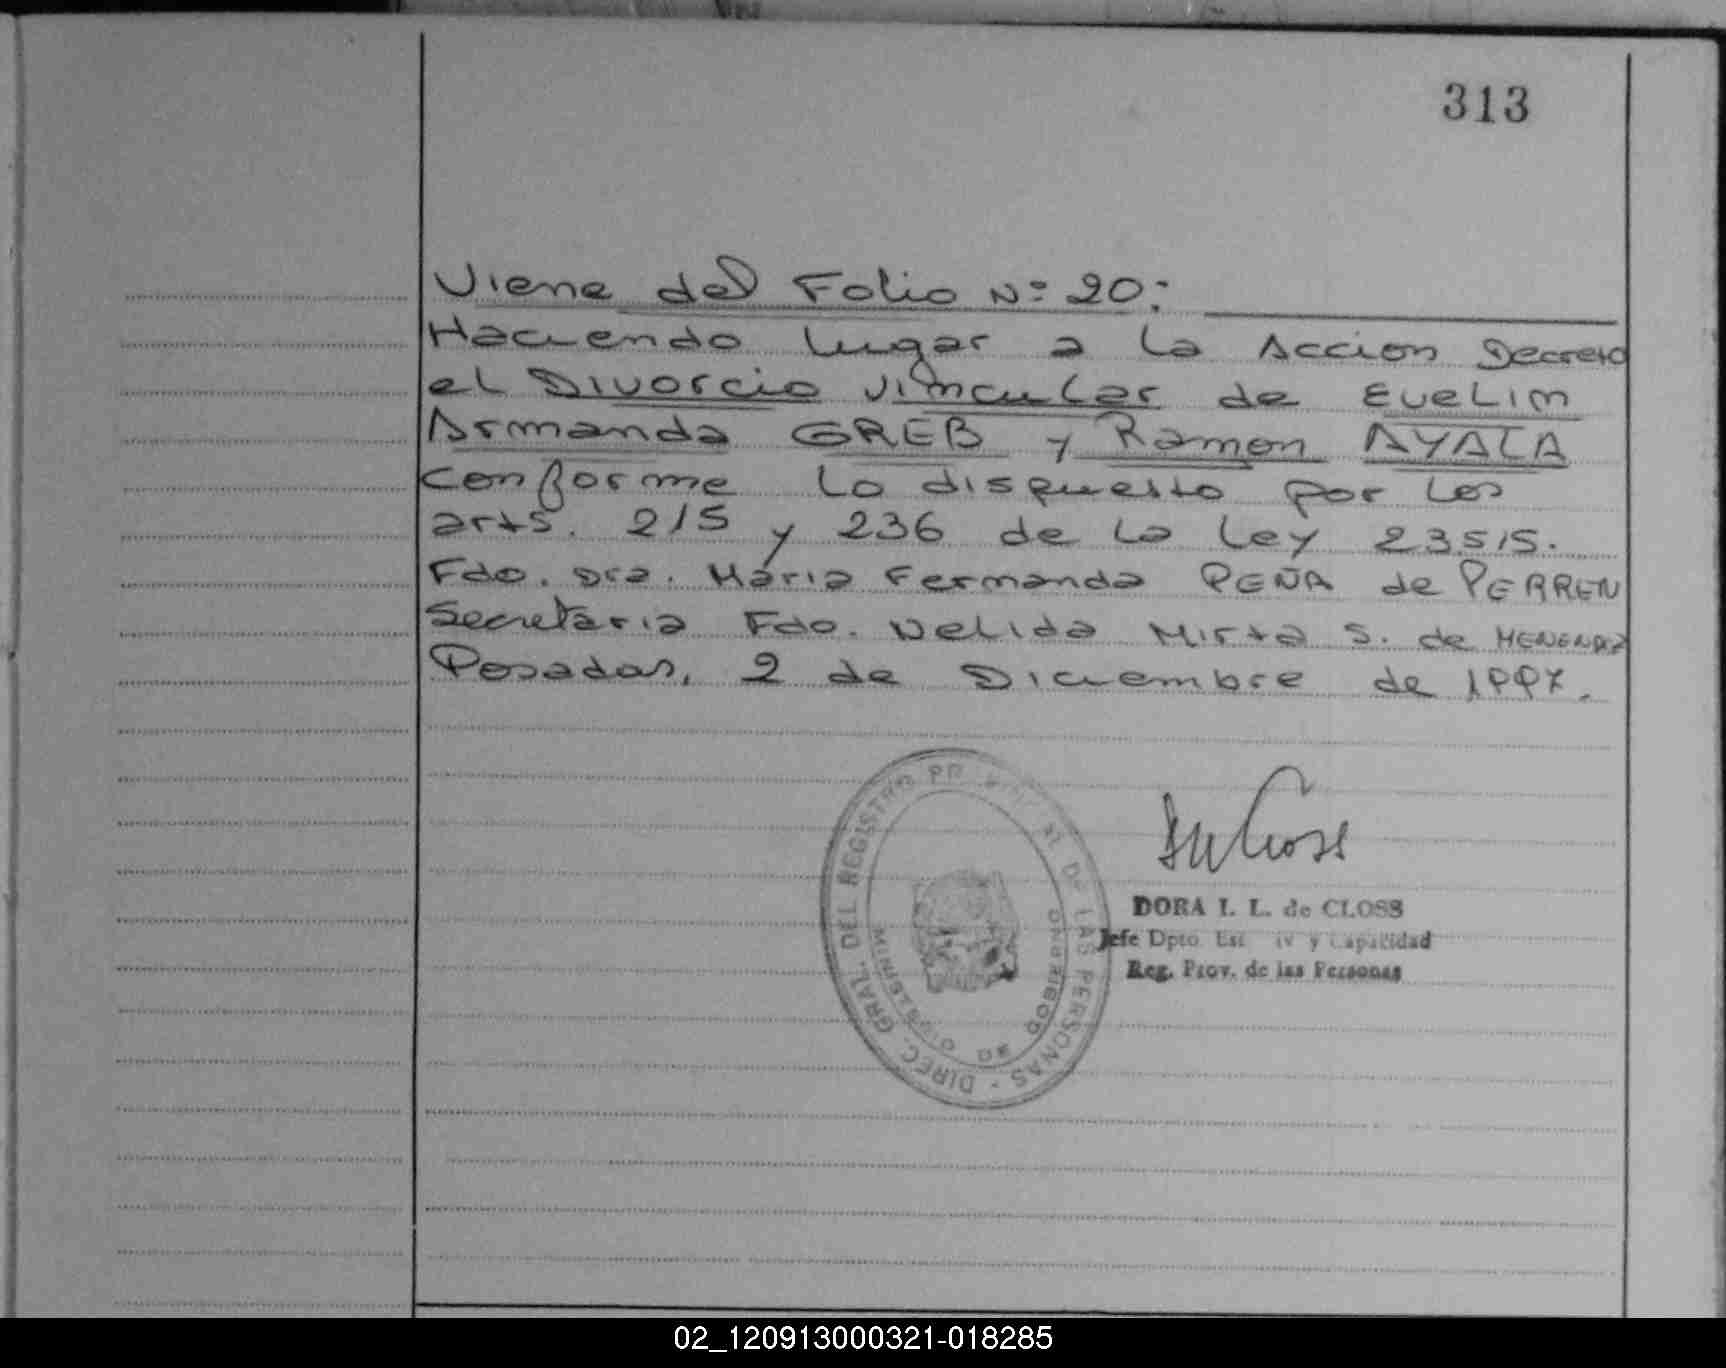 313
Viene del Folio Nº 20:
Haciendo lugar a la Accion Decreto
el Divorcio Vincular de Evelim
Armanda GREB y Ramon AYALA
conforme lo dispuesto por los
arts. 215 y 236 de la Ley 23515.
Fdo. Dra. Maria Fermanda PEÑA de PERREN
Secretaria Fdo. Nelida Mirta S. de MENENDEZ
Posadas, 2 de Diciembre de 1997.
DIREC. GRAL. DEL REGISTRO DE LAS PERSONAS
MINISTERIO DE GOBIERNO
DORA I. L. de CLOSS
Jefe Dpto. y Capacidad
Reg. Prov. de las Personas
02_120913000321-018285